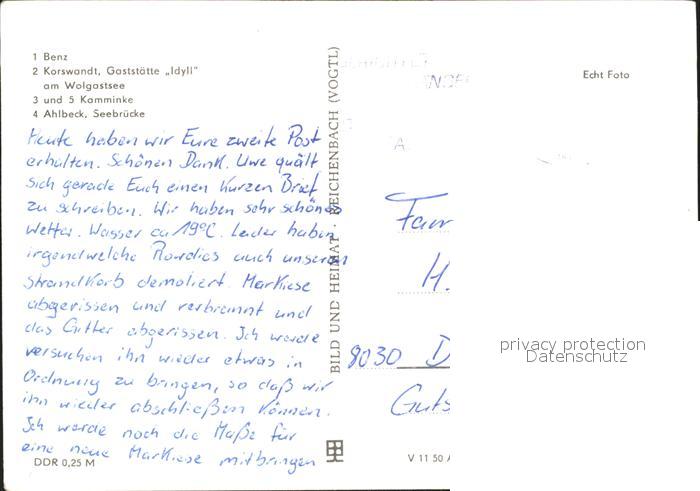 1 Benz
2 Korswandt, Gaststätte „Idyll"
am Wolgastsee
3 und 5 Kamminke
4 Ahlbeck, Seebrücke
Heute haben wir Eure zweite Post
erhalten. Schönen Dank. Uwe quält
sich gerade Euch einen kurzen Brief
zu schreiben. Wir haben sehr schönes
Wetter. Wasser ca 19°C. Leider haben
irgendwelche Rowdies auch unseren
Strandkorb demoliert. Markiese
abgerissen und verbrannt und
das Gitter abgerissen. Ich werde
versuchen ihn wieder etwas in
Ordnung zu bringen, so daß wir
ihn wieder abschließen können.
Ich werde noch die Maße für
eine neue Markiese mitbringen
DDR 0,25 M
BILD UND HEIMAT REICHENBACH (VOGTL)
Echt Foto
Fam
H.
8030 D
Guts
V 11 50 A
privacy protection
Datenschutz